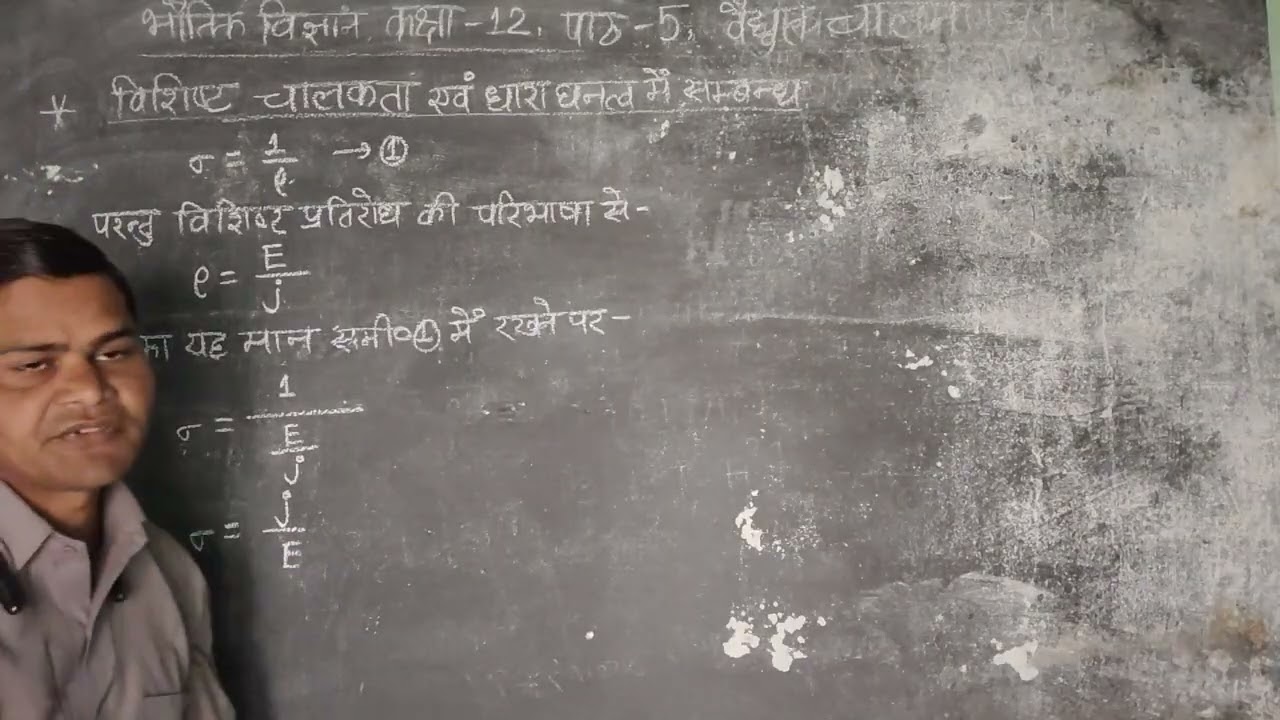 भौतिक विज्ञान, कक्षा -12, पाठ -5, वैद्युत चालन
* विशिष्ट चालकता एवं धारा घनत्व में सम्बन्ध
σ = 1/ρ → ①
परन्तु विशिष्ट प्रतिरोध की परिभाषा से-
ρ = E/j
का यह मान समी० ① में रखने पर-
σ = 1/(E/j)
σ = j/E